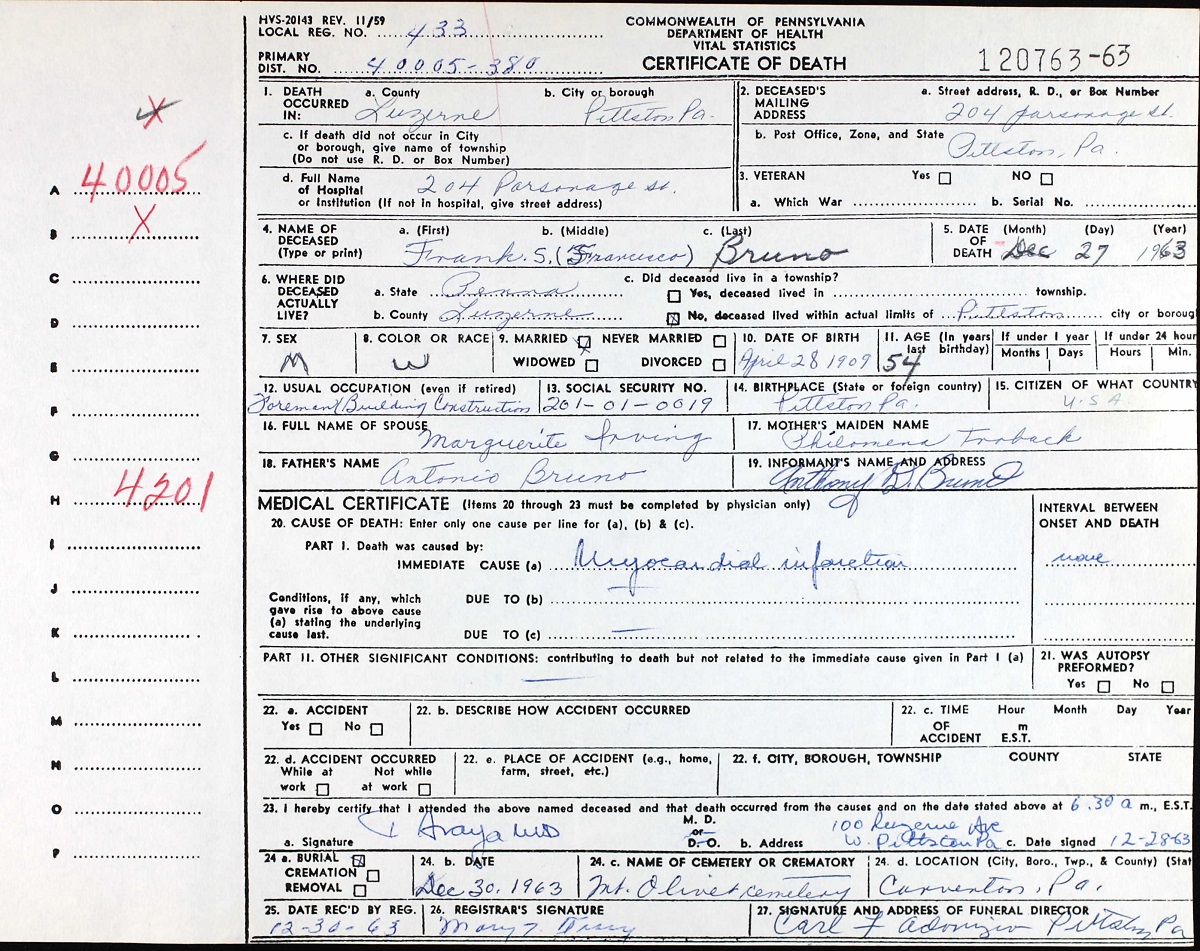 HVS-20143 REV. 11/59
LOCAL REG. NO. 433
PRIMARY DIST. NO. 40005-380
COMMONWEALTH OF PENNSYLVANIA
DEPARTMENT OF HEALTH
VITAL STATISTICS
CERTIFICATE OF DEATH
120763-63
1. DEATH OCCURRED IN: a. County Luzerne b. City or borough Pittston Pa.
c. If death did not occur in City or borough, give name of township (Do not use R. D. or Box Number)
d. Full Name of Hospital or Institution (If not in hospital, give street address) 204 Parsonage St.
2. DECEASED'S MAILING ADDRESS a. Street address, R. D., or Box Number 204 Parsonage St.
b. Post Office, Zone, and State Pittston, Pa.
3. VETERAN Yes NO
a. Which War b. Serial No.
4. NAME OF DECEASED (Type or print) a. (First) b. (Middle) c. (Last)
Frank. S. (Francisco) Bruno
5. DATE OF DEATH (Month) (Day) (Year)
Dec 27 1963
6. WHERE DID DECEASED ACTUALLY LIVE? a. State Penna
b. County Luzerne
c. Did deceased live in a township?
Yes, deceased lived in township.
No, deceased lived within actual limits of Pittston city or boroug
7. SEX M
8. COLOR OR RACE W
9. MARRIED NEVER MARRIED
WIDOWED DIVORCED
10. DATE OF BIRTH April 28 1909
11. AGE (In years last birthday) 54
If under 1 year Months Days
If under 24 hour Hours Min.
12. USUAL OCCUPATION (even if retired) Foreman Building Construction
13. SOCIAL SECURITY NO. 201-01-0019
14. BIRTHPLACE (State or foreign country) Pittston Pa.
15. CITIZEN OF WHAT COUNTRY U.S.A.
16. FULL NAME OF SPOUSE Marguerite Irving
17. MOTHER'S MAIDEN NAME Philomena
18. FATHER'S NAME Antonio Bruno
19. INFORMANT'S NAME AND ADDRESS Anthony Bruno
MEDICAL CERTIFICATE (Items 20 through 23 must be completed by physician only)
20. CAUSE OF DEATH: Enter only one cause per line for (a), (b) & (c).
INTERVAL BETWEEN ONSET AND DEATH
PART I. Death was caused by:
IMMEDIATE CAUSE (a) Myocardial infarction none
Conditions, if any, which gave rise to above cause (a) stating the underlying cause last.
DUE TO (b)
DUE TO (c)
PART II. OTHER SIGNIFICANT CONDITIONS: contributing to death but not related to the immediate cause given in Part I (a)
21. WAS AUTOPSY PREFORMED?
Yes No
22. a. ACCIDENT Yes No
22. b. DESCRIBE HOW ACCIDENT OCCURRED
22. c. TIME OF ACCIDENT Hour m E.S.T. Month Day Year
22. d. ACCIDENT OCCURRED While at work Not while at work
22. e. PLACE OF ACCIDENT (e.g., home, farm, street, etc.)
22. f. CITY, BOROUGH, TOWNSHIP COUNTY STATE
23. I hereby certify that I attended the above named deceased and that death occurred from the causes and on the date stated above at 6.30 a m., E.S.T.
a. Signature Araya MD M. D. or D. O. b. Address 100 Luzerne Ave W. Pittston Pa c. Date signed 12-28-63
24 a. BURIAL
CREMATION
REMOVAL
24. b. DATE Dec 30, 1963
24. c. NAME OF CEMETERY OR CREMATORY Mt. Olivet cemetery
24. d. LOCATION (City, Boro., Twp., & County) (Stat Carverton, Pa.
25. DATE REC'D BY REG. 12-30-63
26. REGISTRAR'S SIGNATURE Mary T.
27. SIGNATURE AND ADDRESS OF FUNERAL DIRECTOR Carl F Adonizio Pittston Pa
X
A 40005
B X
C
D
E
F
G
H 4201
I
J
K
L
M
N
O
P